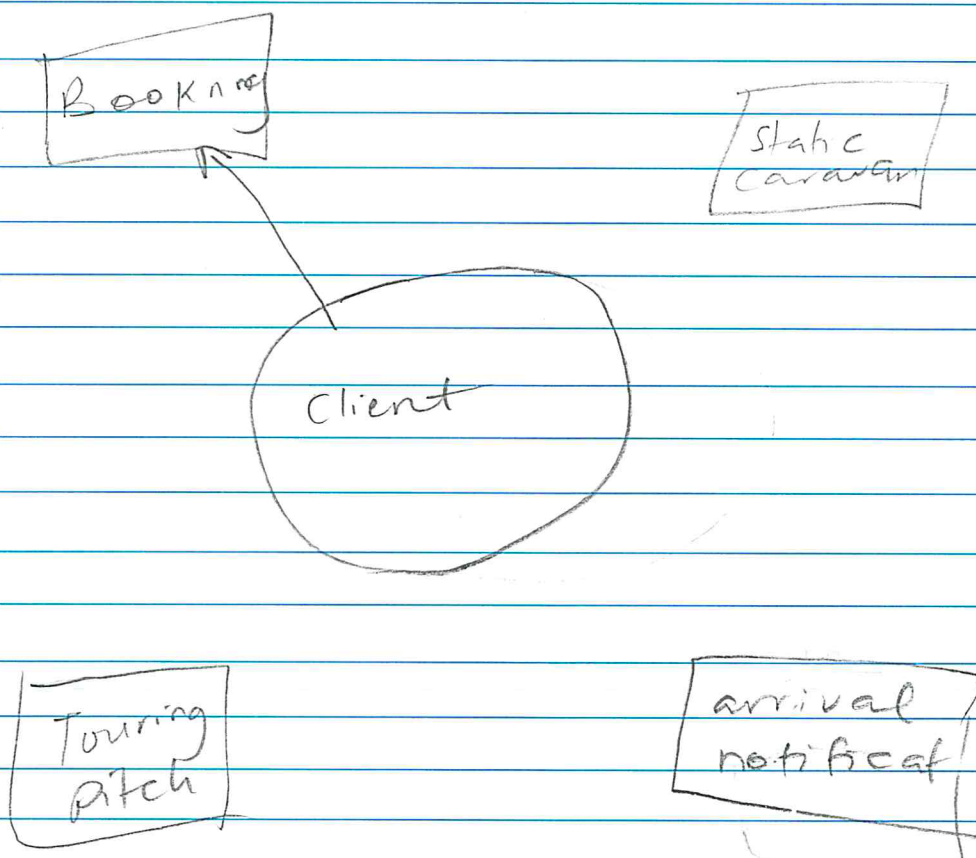 Bookning
Static
caravan
Client
Touring
pitch
arrival
notificat